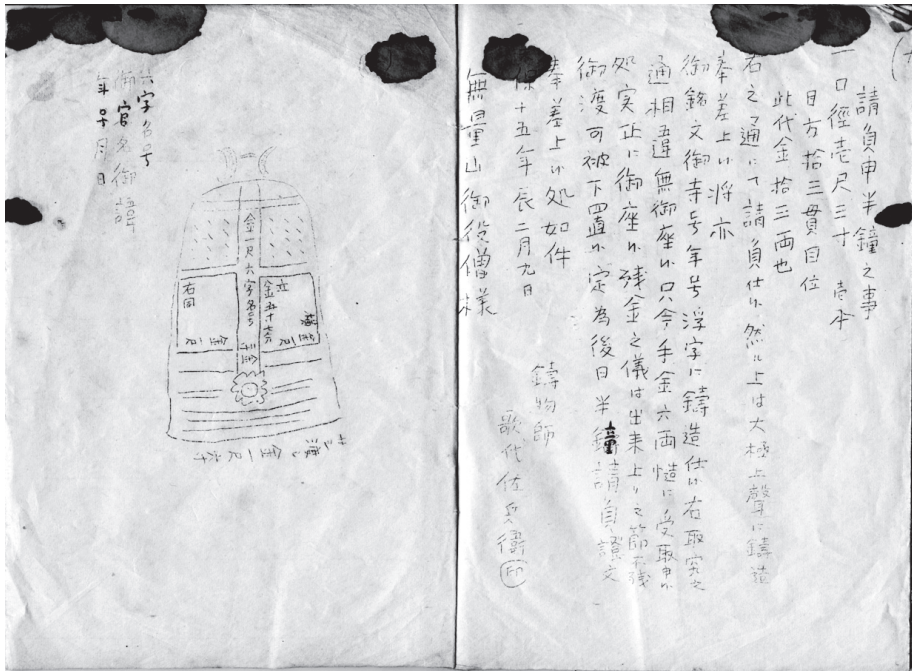 請負申半鐘之事
一口径壱尺三寸 壱本
目方拾三貫目位
此代金拾三両也
右之通にて請負仕候然ル上は大極上聲に鋳造
奉差上候将亦
御銘文御寺号年号浮字に鋳造仕候右取究之
通相違無御座候只今手金六両慥に受取申候
処実正に御座候残金之儀は出来上り之節不残
御渡可被下置候定為後日半鐘請負證文
奉差上候処如件
保十五年辰二月九日
鋳物師
歌代佐兵衛 印
無量山御役僧様
六字名号
御官名御諱
年号月日
金一尺六字名号
金五十
右同
金一尺